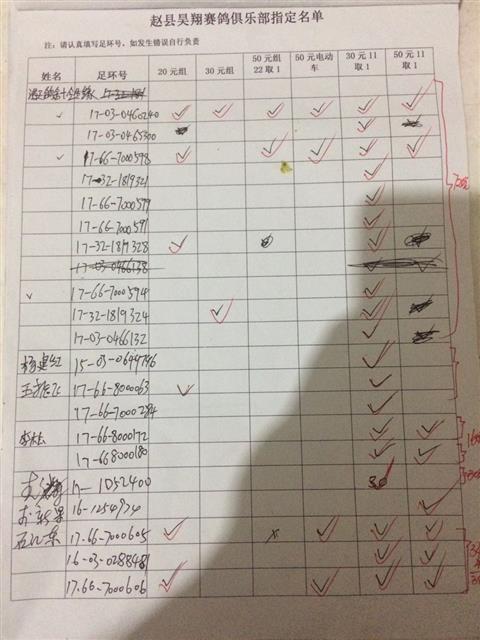 赵县昊翔赛鸽俱乐部指定名单
注：请认真填写足环号，如发生错误自行负责
姓名 足环号 20元组 30元组 50元组22取1 50元电动车 30元11取1 50元11取1
17-03-0460240
17-03-0465300
17-66-7000598
17-32-1819321
17-66-7000599
17-66-7000591
17-32-1819328
17-03-0466138
17-66-7000594
17-32-1819324
17-03-0466132
15-03-0644746
17-66-8000063
17-66-7000284
17-66-8000172
17-668000180
17-1052400
16-1254974
17-66-7000605
16-03-0288481
17-66-7000606